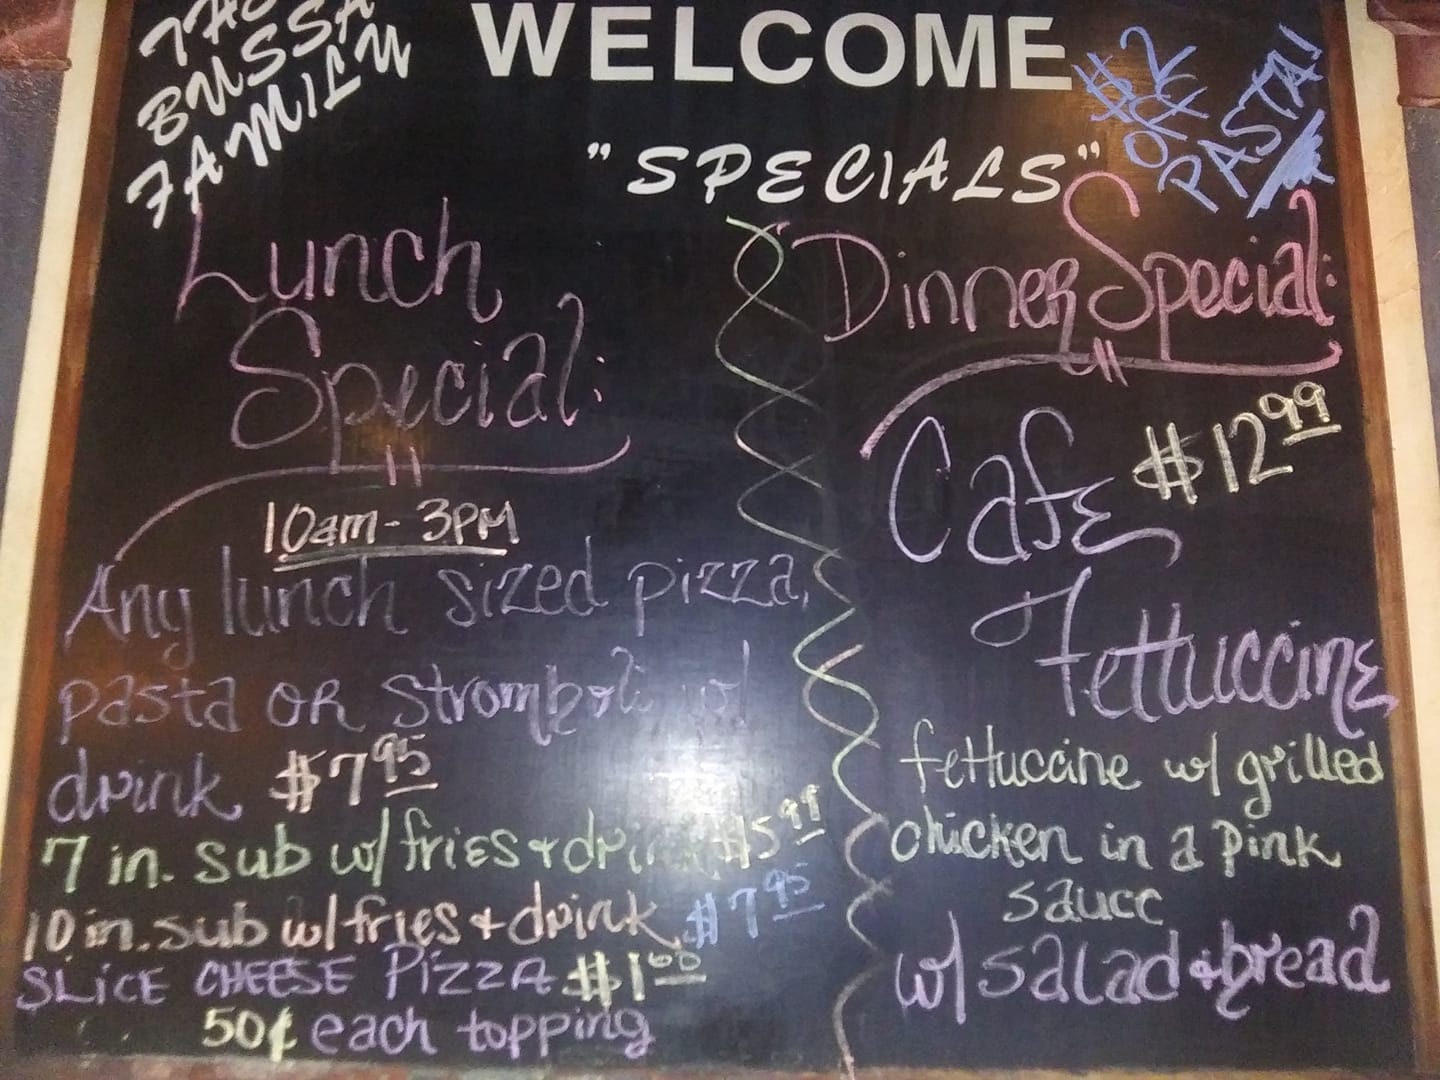 BUSSA
FAMILY
WELCOME
"SPECIALS"
$2
OFF
PASTA!
Lunch
Special:
10am - 3PM
Any lunch sized pizza,
pasta OR stromboli w/
drink $7.95
7 in. sub w/ fries + drink $5.99
10 in. sub w/ fries + drink $7.95
SLICE CHEESE PIZZA $1.00
50¢ each topping
Dinner Special:
$12.99
Cafe
Fettuccine
fettuccine w/ grilled
chicken in a pink
sauce
w/ salad + bread